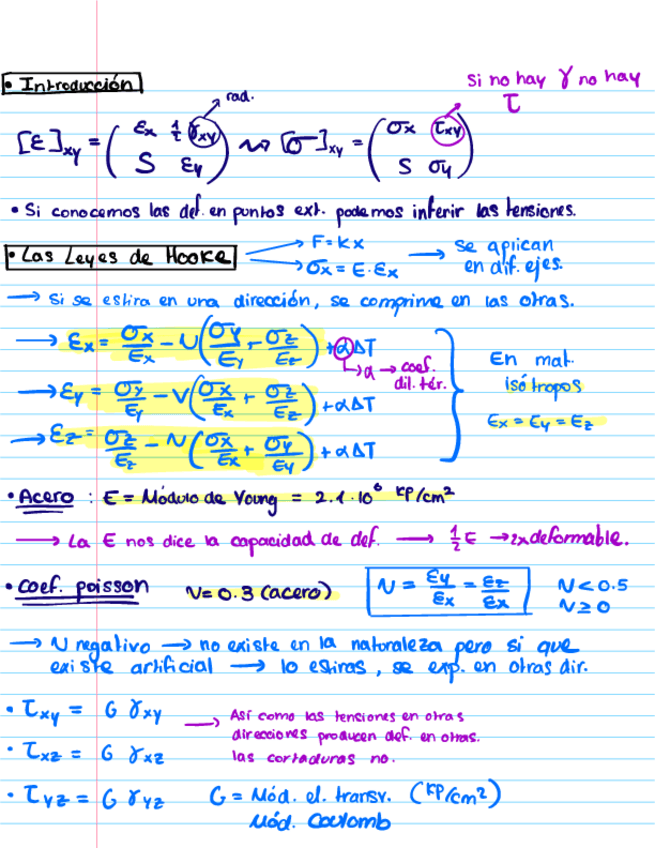 • Introducción
Si no hay γ no hay
τ
rad.
[ε]xy = ( εx ½ γxy ) ⇝ [σ]xy = ( σx τxy )
S εy S σy
• Si conocemos las def. en puntos ext. podemos inferir las tensiones.
• Las Leyes de Hooke → F = kx → se aplican
→ σx = E·εx en dif. ejes.
→ Si se estira en una dirección, se comprime en las otras.
→ εx = σx/Ex − ν(σy/Ey + σz/Ez) + αΔT
↳ α → coef.
dil. tér.
→ εy = σy/Ey − ν(σx/Ex + σz/Ez) + αΔT
→ εz = σz/Ez − ν(σx/Ex + σy/Ey) + αΔT
En mat.
isótropos
Ex = Ey = Ez
• Acero : E = Módulo de Young = 2.1·10⁶ kp/cm²
→ La E nos dice la capacidad de def. → ½ E → 2x deformable.
• Coef. poisson ν = 0.3 (acero) ν = εy/εx = εz/εx ν < 0.5
ν ≥ 0
→ ν negativo → no existe en la naturaleza pero si que
existe artificial → lo estiras, se exp. en otras dir.
• τxy = G γxy → Así como las tensiones en otras
direcciones producen def. en otras.
• τxz = G γxz las cortaduras no.
• τyz = G γyz G = Mód. el. transv. (kp/cm²)
Mód. Coulomb